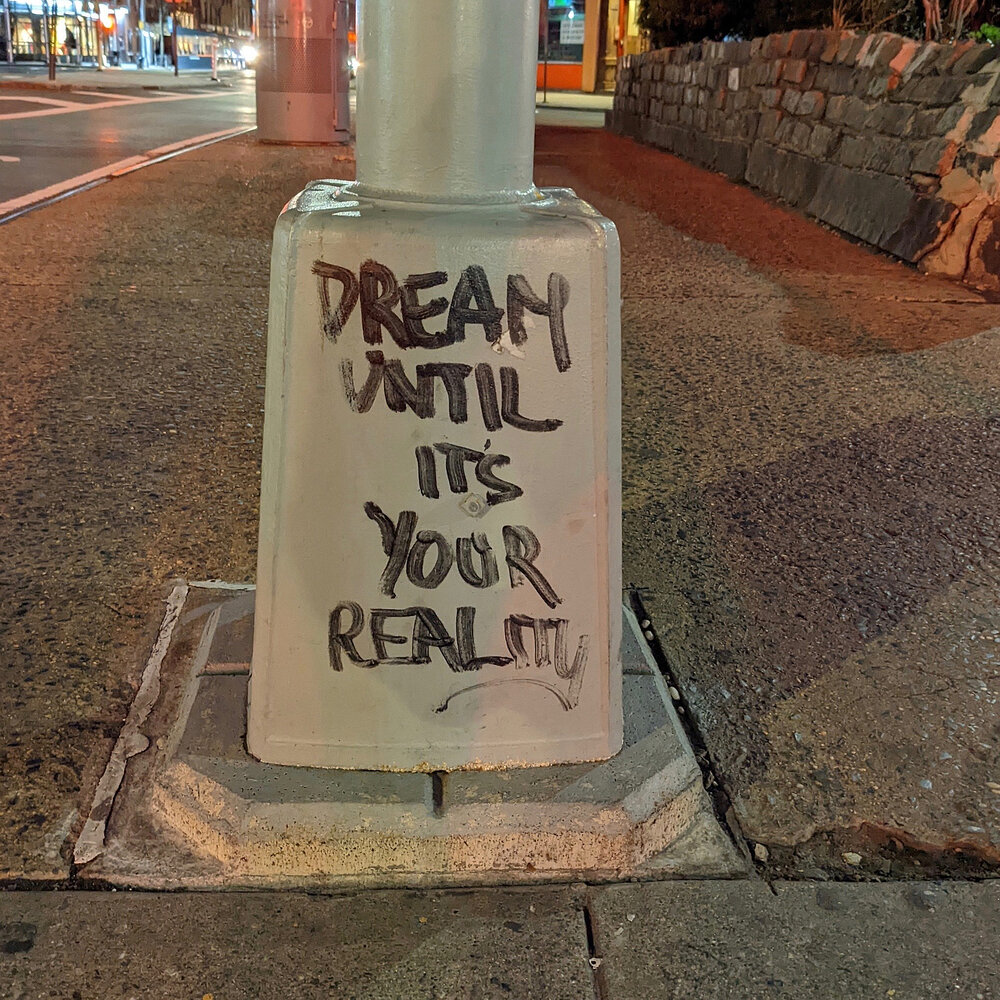 DREAM
UNTIL
IT'S
YOUR
REALITY